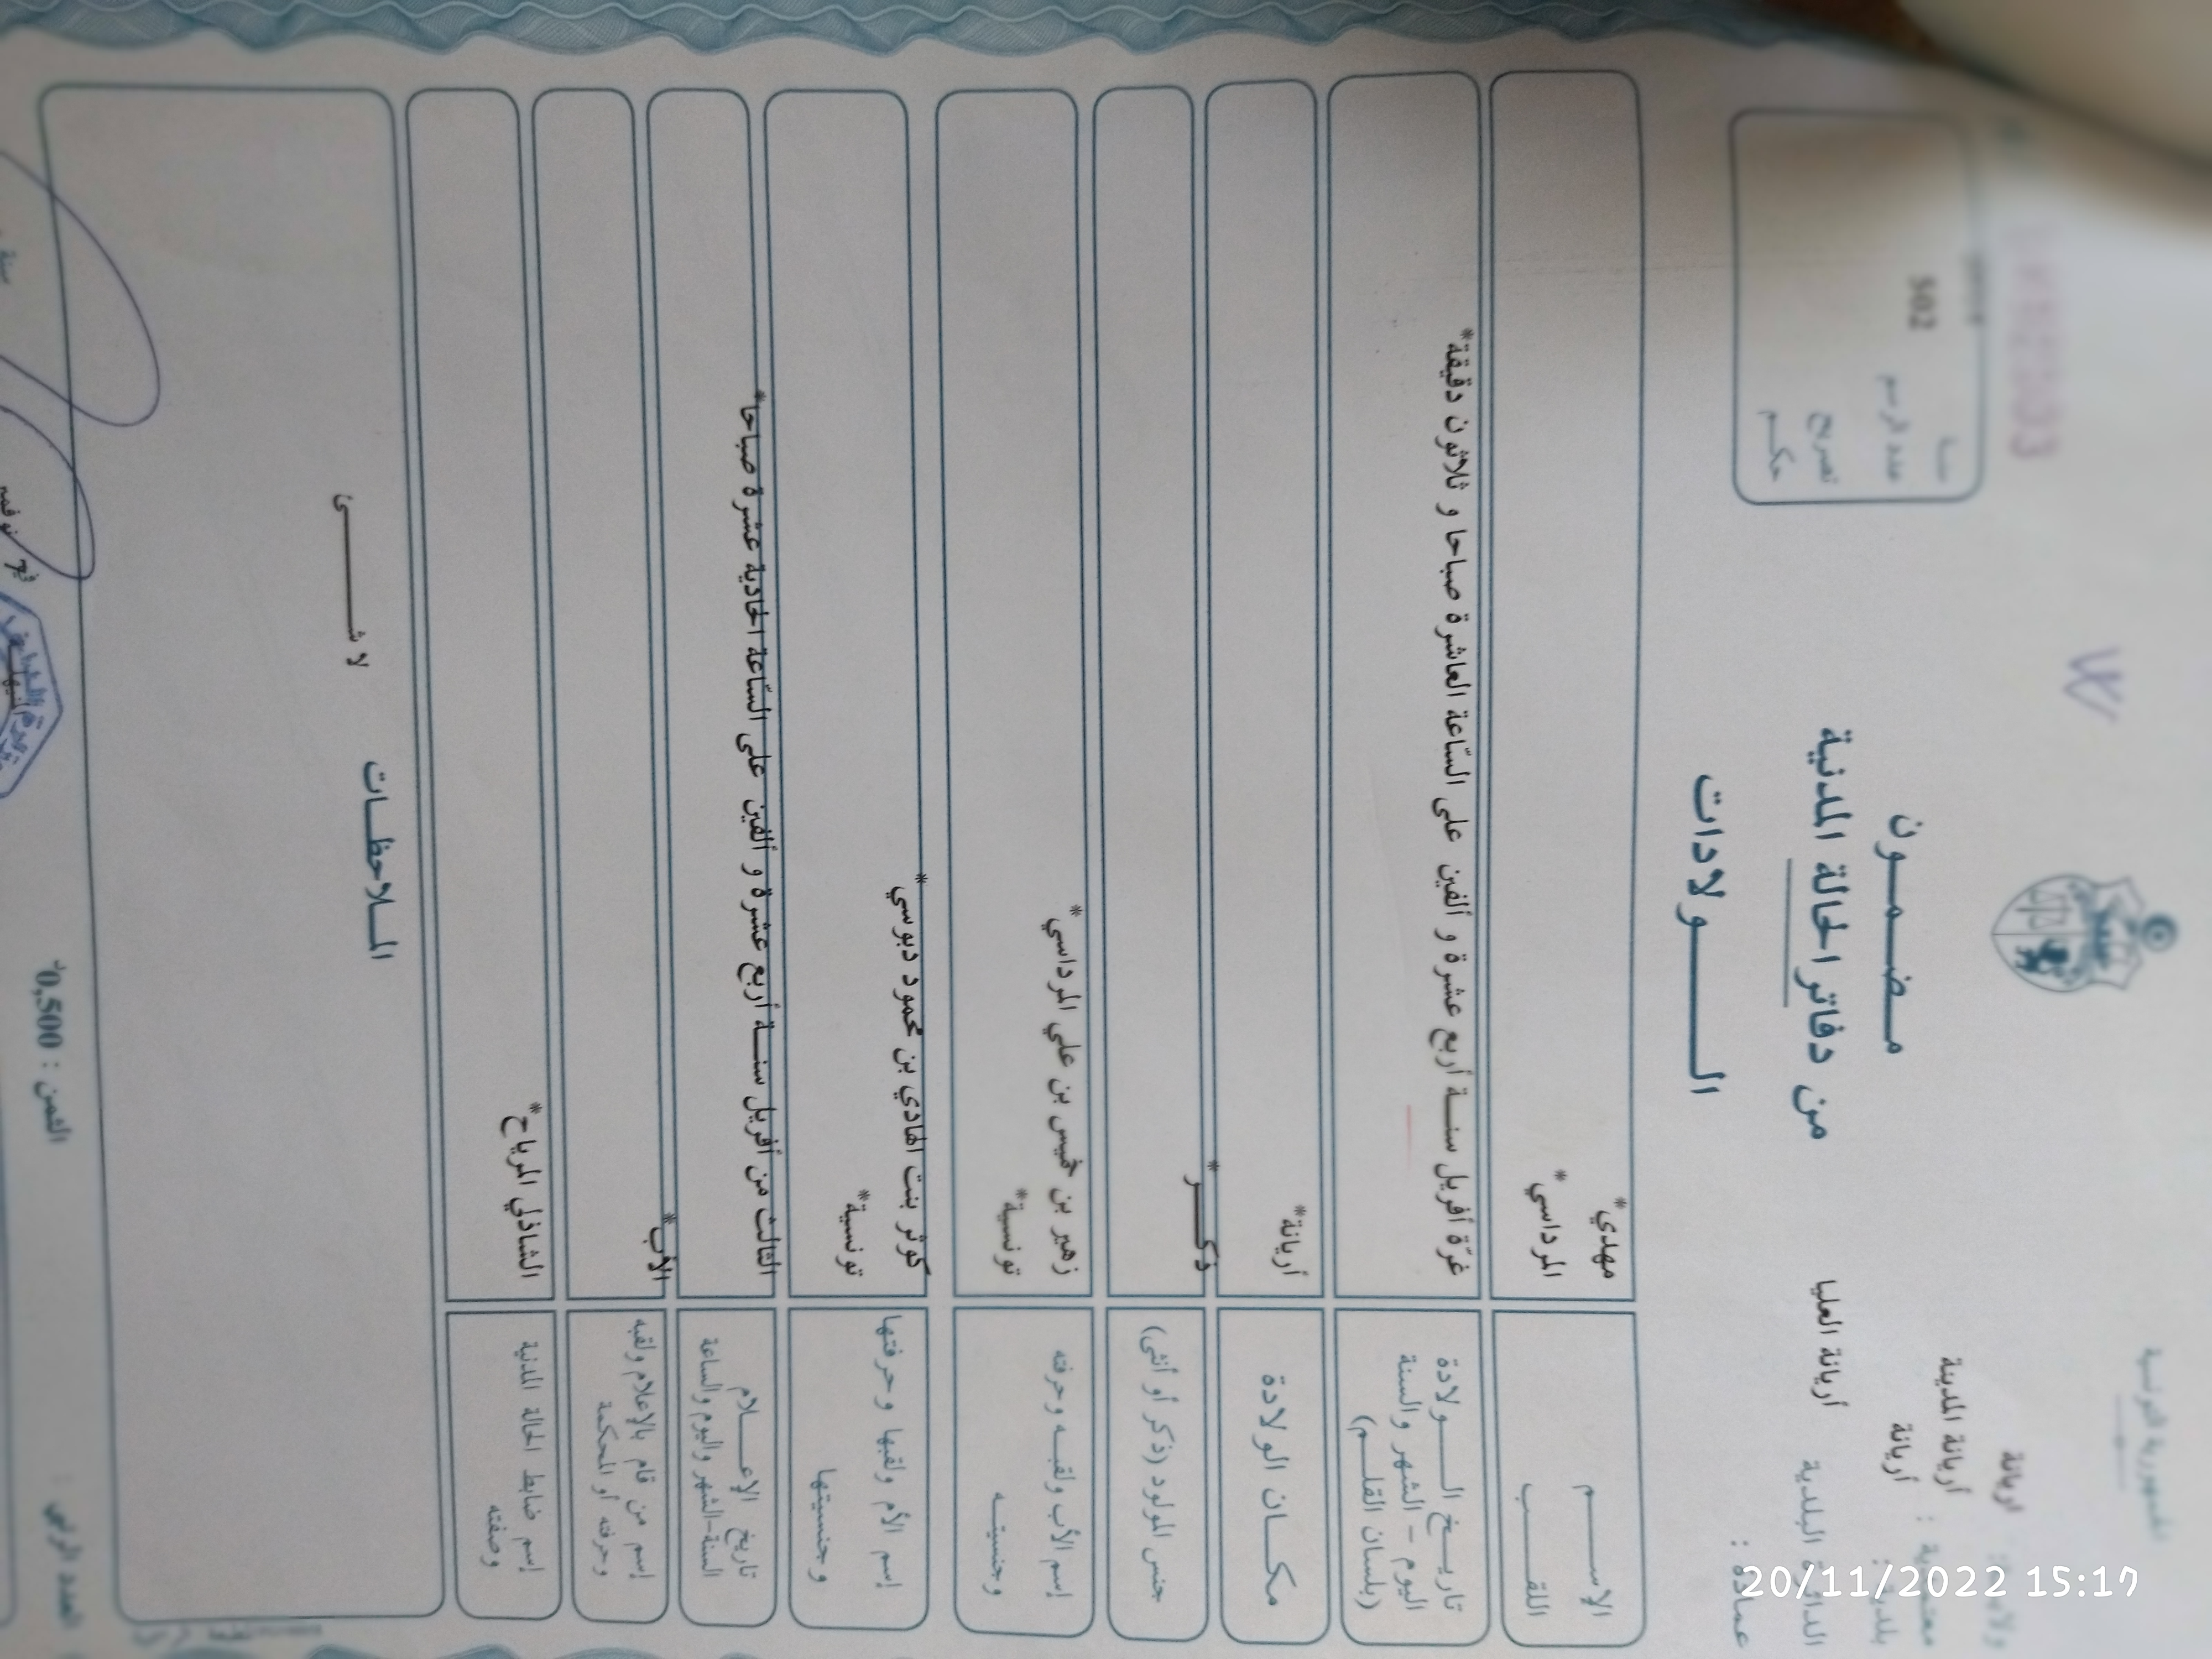 الجمهورية التونسية
ولاية: اريانة
معتمدية : أريانة المدينة
بلدية : أريانة
الدائرة البلدية أريانة العليا
عمادة :
مـضـمـــون
من دفاتر الحالة المدنية
الـــــولادات
عدد الرسم 502
تصريح
حكـم
الإســــم مهدي*
اللقـــب المرداسي*
تاريـــخ الــــولادة
اليوم - الشهر والسنة
(بلسان القلــم)
غرّة أفريل سنــة أربع عشرة و ألفين على السّاعة العاشرة صباحا و ثلاثون دقيقة*
مكــان الولادة أريانة*
جنس المولود (ذكر أو أنثى) ذكـــر*
إسم الأب ولقبــه وحرفته زهير بن خميس بن علي المرداسي*
وجنسيتــه تونسية*
إسم الأم ولقبها وحرفتها كوثر بنت الهادي بن محمود دبوسي*
وجنسيتها تونسية*
تاريخ الإعــــلام
السنة-الشهر واليوم والساعة
الثالث من أفريل سنــة أربع عشرة و ألفين على السّاعة الحادية عشرة صباحا*
إسم من قام بالإعلام ولقبه
وحرفته أو المحكمة
الأب*
إسم ضابط الحالة المدنية
وصفته
الشاذلي المرياح*
المــلاحظــات
لا شـــــــئ
الثمن : 0,500د
العدد الرتبي :
20/11/2022 15:17